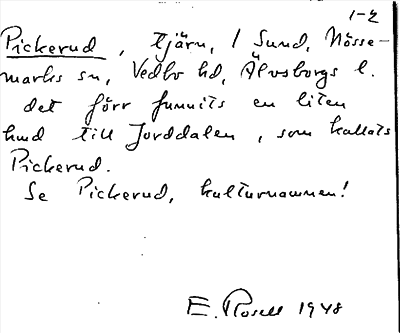 1-2
Pickerud, tjärn, i Sund, Nösse-
marks sn, Vedbo hd, Älvsborgs l.
det förr funnits en liten
lund till Jorddalen, som kallats
Pickerud.
Se Pickerud, kulturnamnen!
E. Rosell 1948